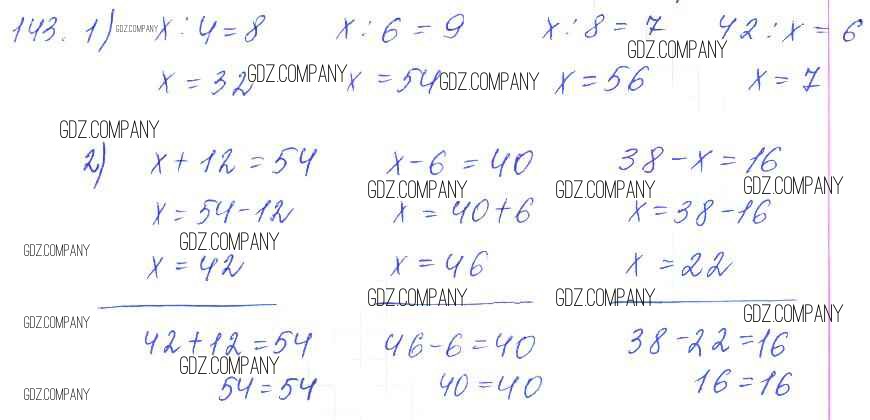 143. 1) GDZ.COMPANY x : 4 = 8 x : 6 = 9 x : 8 = 7 42 : x = 6
GDZ.COMPANY
x = 32 GDZ.COMPANY x = 54 GDZ.COMPANY x = 56 x = 7
GDZ.COMPANY
2) x + 12 = 54 x - 6 = 40 38 - x = 16
GDZ.COMPANY GDZ.COMPANY GDZ.COMPANY
x = 54 - 12 x = 40 + 6 x = 38 - 16
GDZ.COMPANY GDZ.COMPANY
x = 42 x = 46 x = 22
GDZ.COMPANY GDZ.COMPANY
GDZ.COMPANY GDZ.COMPANY
42 + 12 = 54 46 - 6 = 40 38 - 22 = 16
GDZ.COMPANY
54 = 54 40 = 40 16 = 16
GDZ.COMPANY